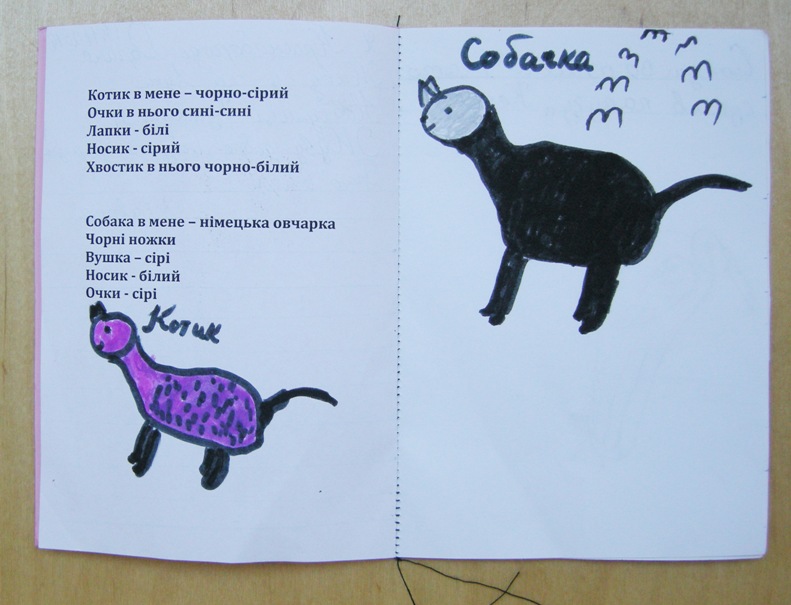 Котик в мене – чорно-сірий
Очки в нього сині-сині
Лапки - білі
Носик - сірий
Хвостик в нього чорно-білий
Собака в мене – німецька овчарка
Чорні ножки
Вушка – сірі
Носик - білий
Очки - сірі
Котик
Собачка